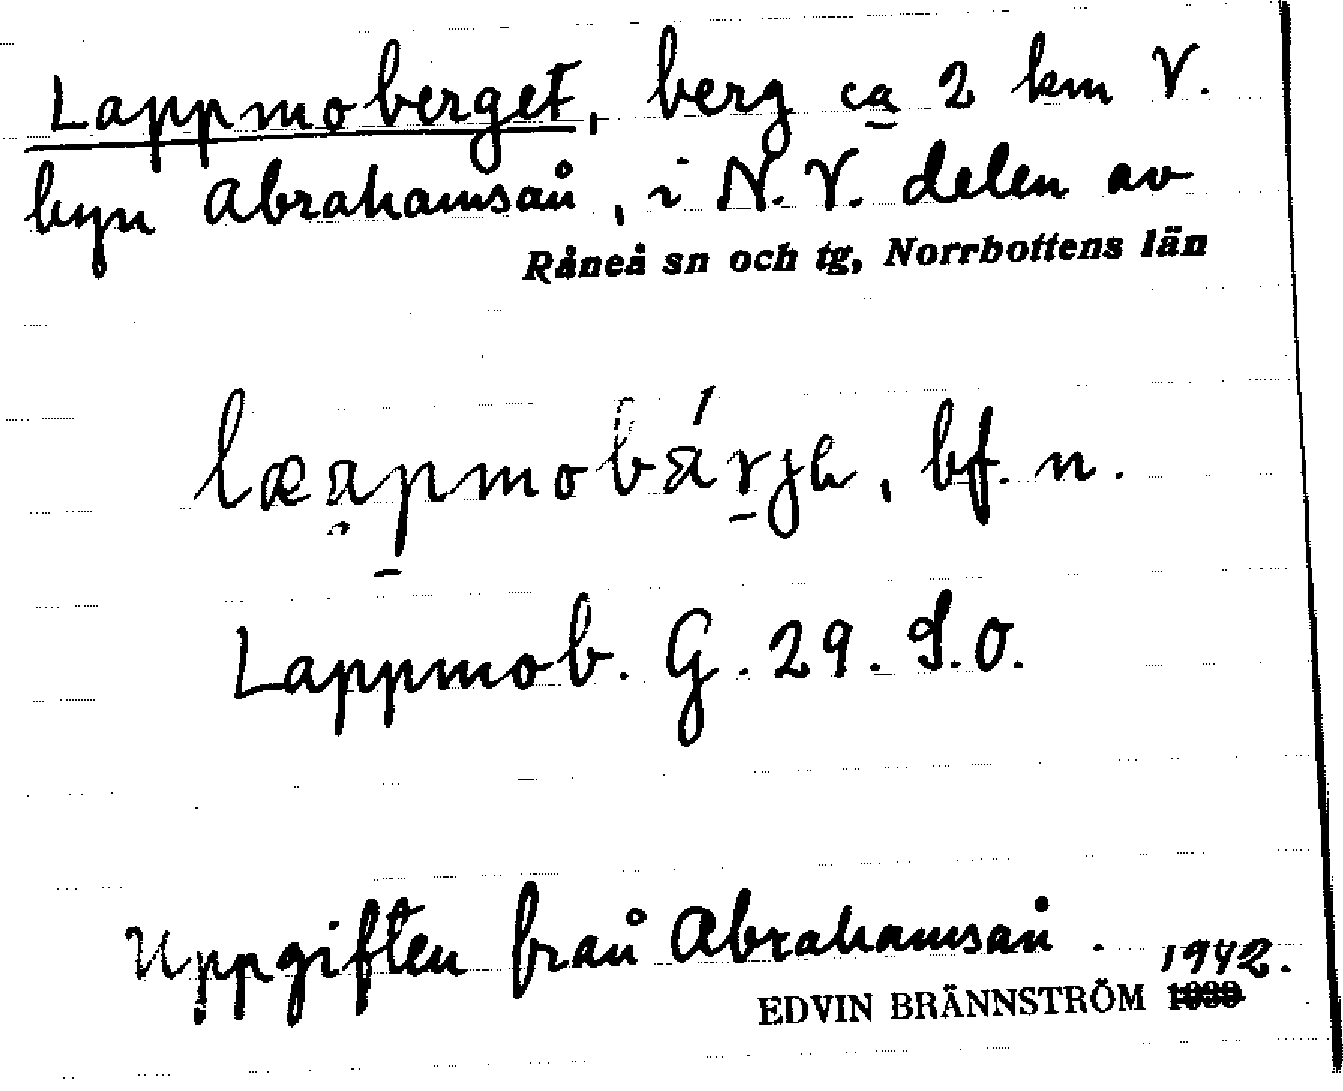 Lappmoberget, berg ca 2 km V.
byn Abrahamsån, i N.V. delen av
Råneå sn och tg, Norrbottens län
bf. n.
Lappmob. G. 29. S.O.
Uppgiften från Abrahamsån. 1942.
EDVIN BRÄNNSTRÖM 1939